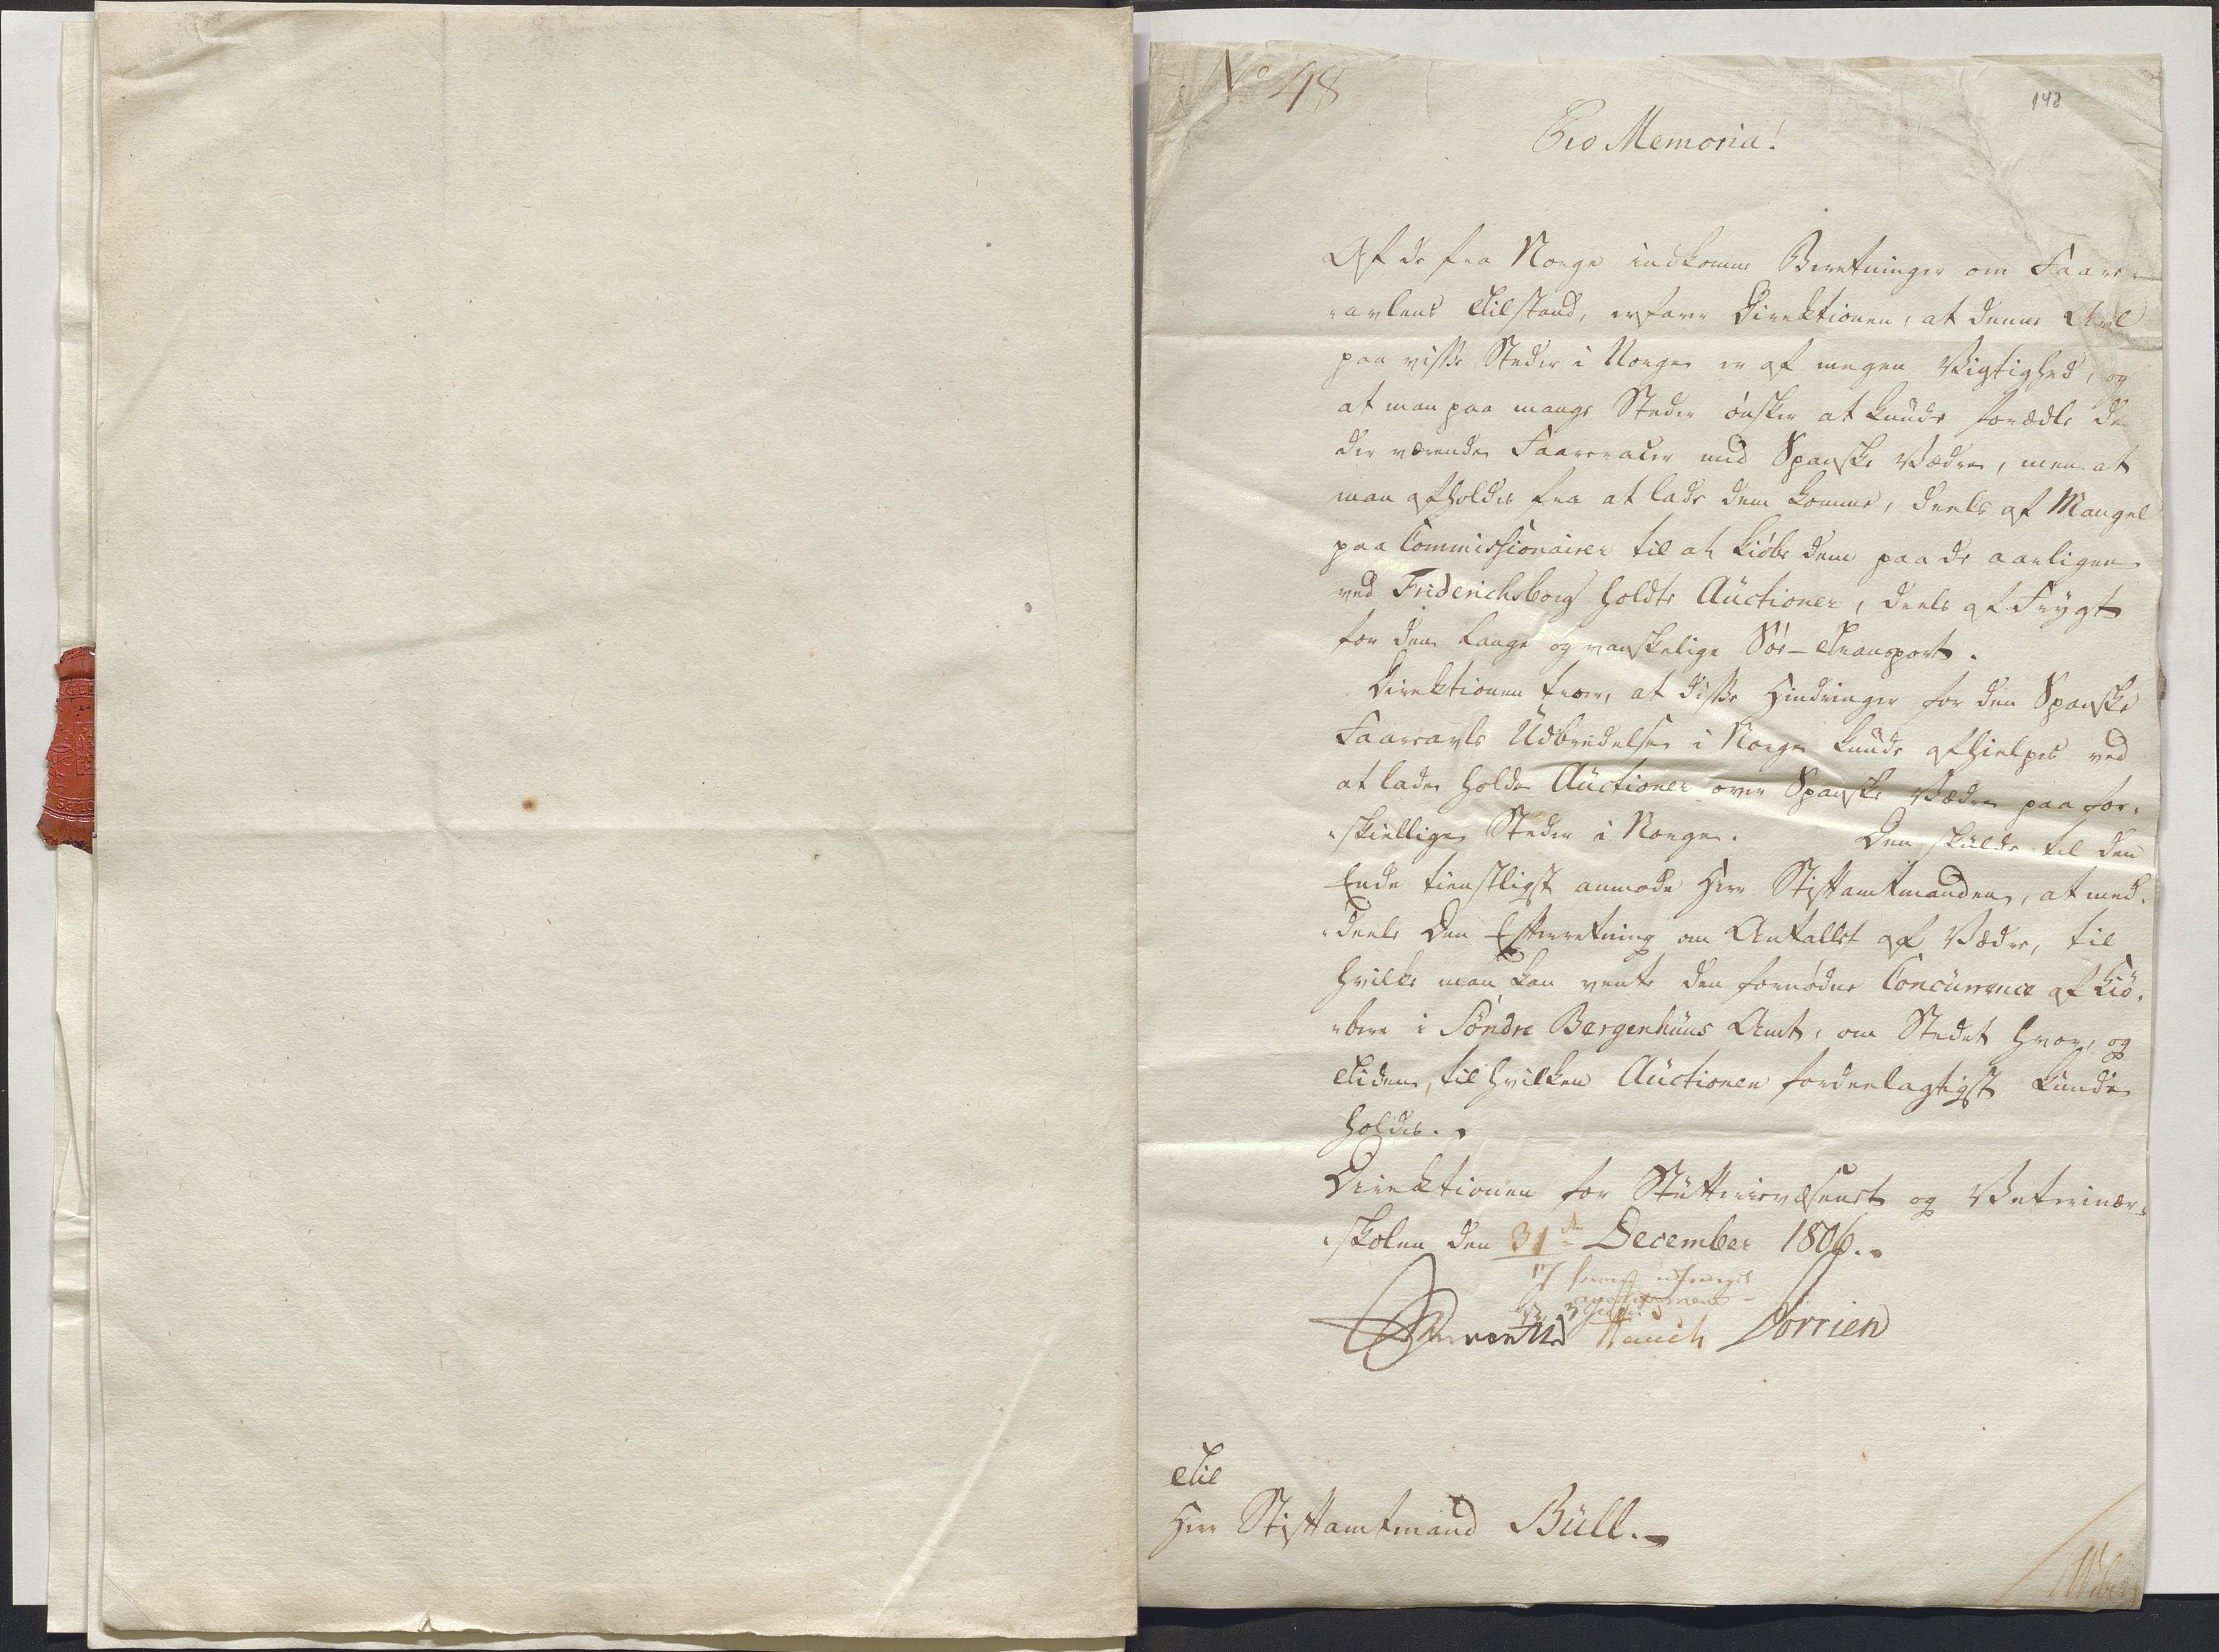 No 48
142
Pro Memoria!
Af de fra Norge indkomne Beretninger om Faare-
-avlens Tilstand, erfarer Direktionen, at denne Avl
paa visse Steder i Norge er af megen Vigtighed, og
at man paa mange Steder ønsker at kunde forædle de
der værende Faareracer med Spanske Vædre, men at
man afholdes fra at lade dem komme, deels af Mangel
paa Commissionairer til at kiøbe dem paa de aarligen
ved Friderichsborg holdte Auctioner, deels af Frygt
for den lange og vanskelige Søe-Transport.
Direktionen troer, at disse Hindringer for den Spanske
Faareavls Udbredelse i Norge kunde afhielpes ved
at lade holde Auctioner over Spanske Vædre paa for-
-skiellige Steder i Norge. Den skulde til den
Ende tienstligst anmode Herr Stiftamtmanden, at med-
-deele den Efterretning om Antallet af Vædre, til
hvilke man kan vente den fornødne Concurrence af Kiø-
-bere i Söndre Bergenhuus Amt, om Stedet hvor, og
Tiden, til hvilken Auctionen fordeelagtigst kunde
holdes.
Direktionen for Stutterievæsenet og Veterinair-
-skolen den 31de December 1806.
Hauch Dorrien
Til
Herr Stiftamtmand Bull.